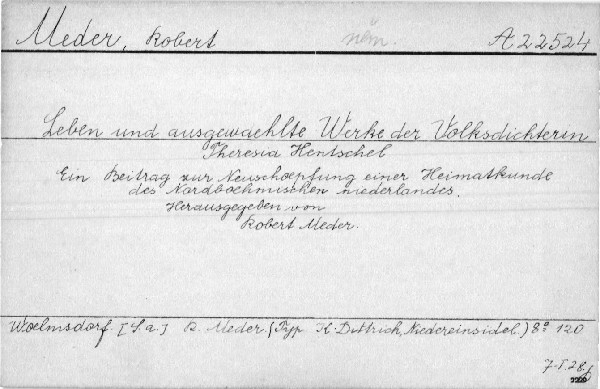 Meder, Robert něm. A 22524
Leben und ausgewaehlte Werke der Volksdichterin
Theresia Hentschel
Ein Beitrag zur Neuschoepfung einer Heimatkunde
des Nordboehmischen niederlandes.
Herausgegeben von
Robert Meder.
Woelmsdorf [S a.] R. Meder. (Typ K. Dittrich, Niedereinsidel.) 8° 120
7-I.28